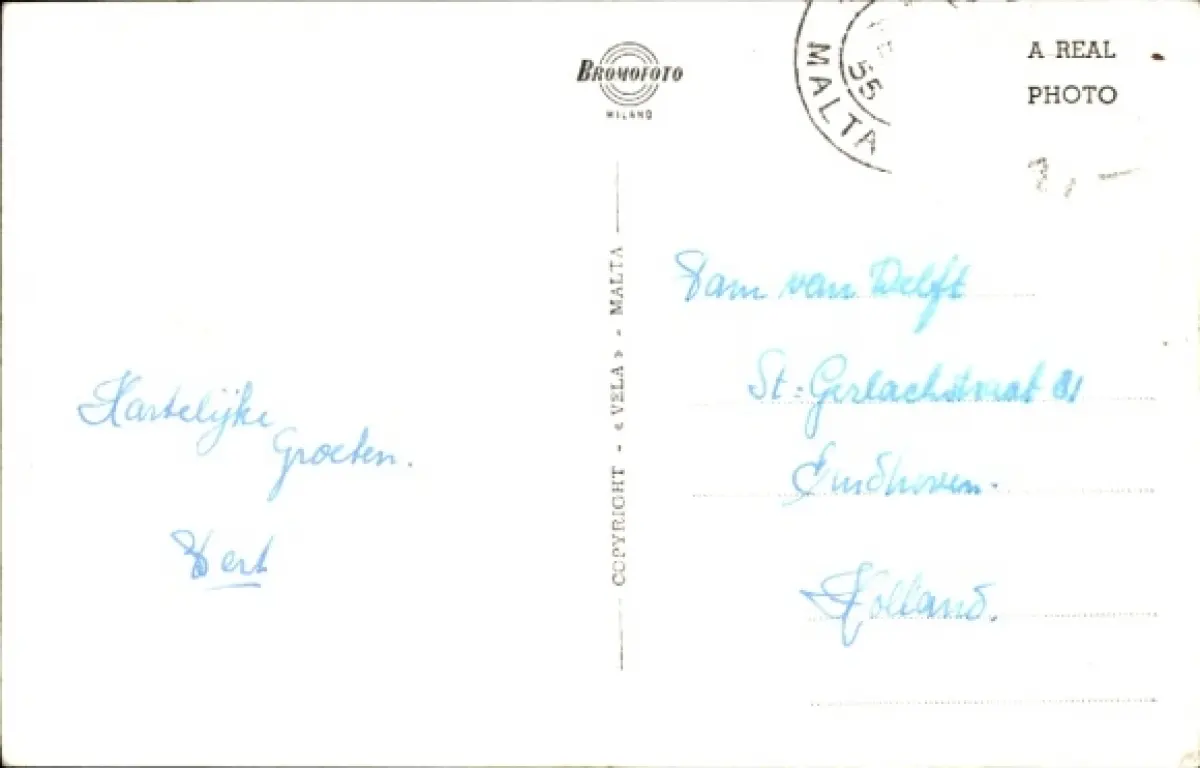 BROMOFOTO
MILANO
55
MALTA
A REAL
PHOTO
COPYRIGHT - «VELA» - MALTA
Hartelijke
Groeten.
Bert
Fam van Delft
St-Gerlachstraat 31
Eindhoven.
Holland.